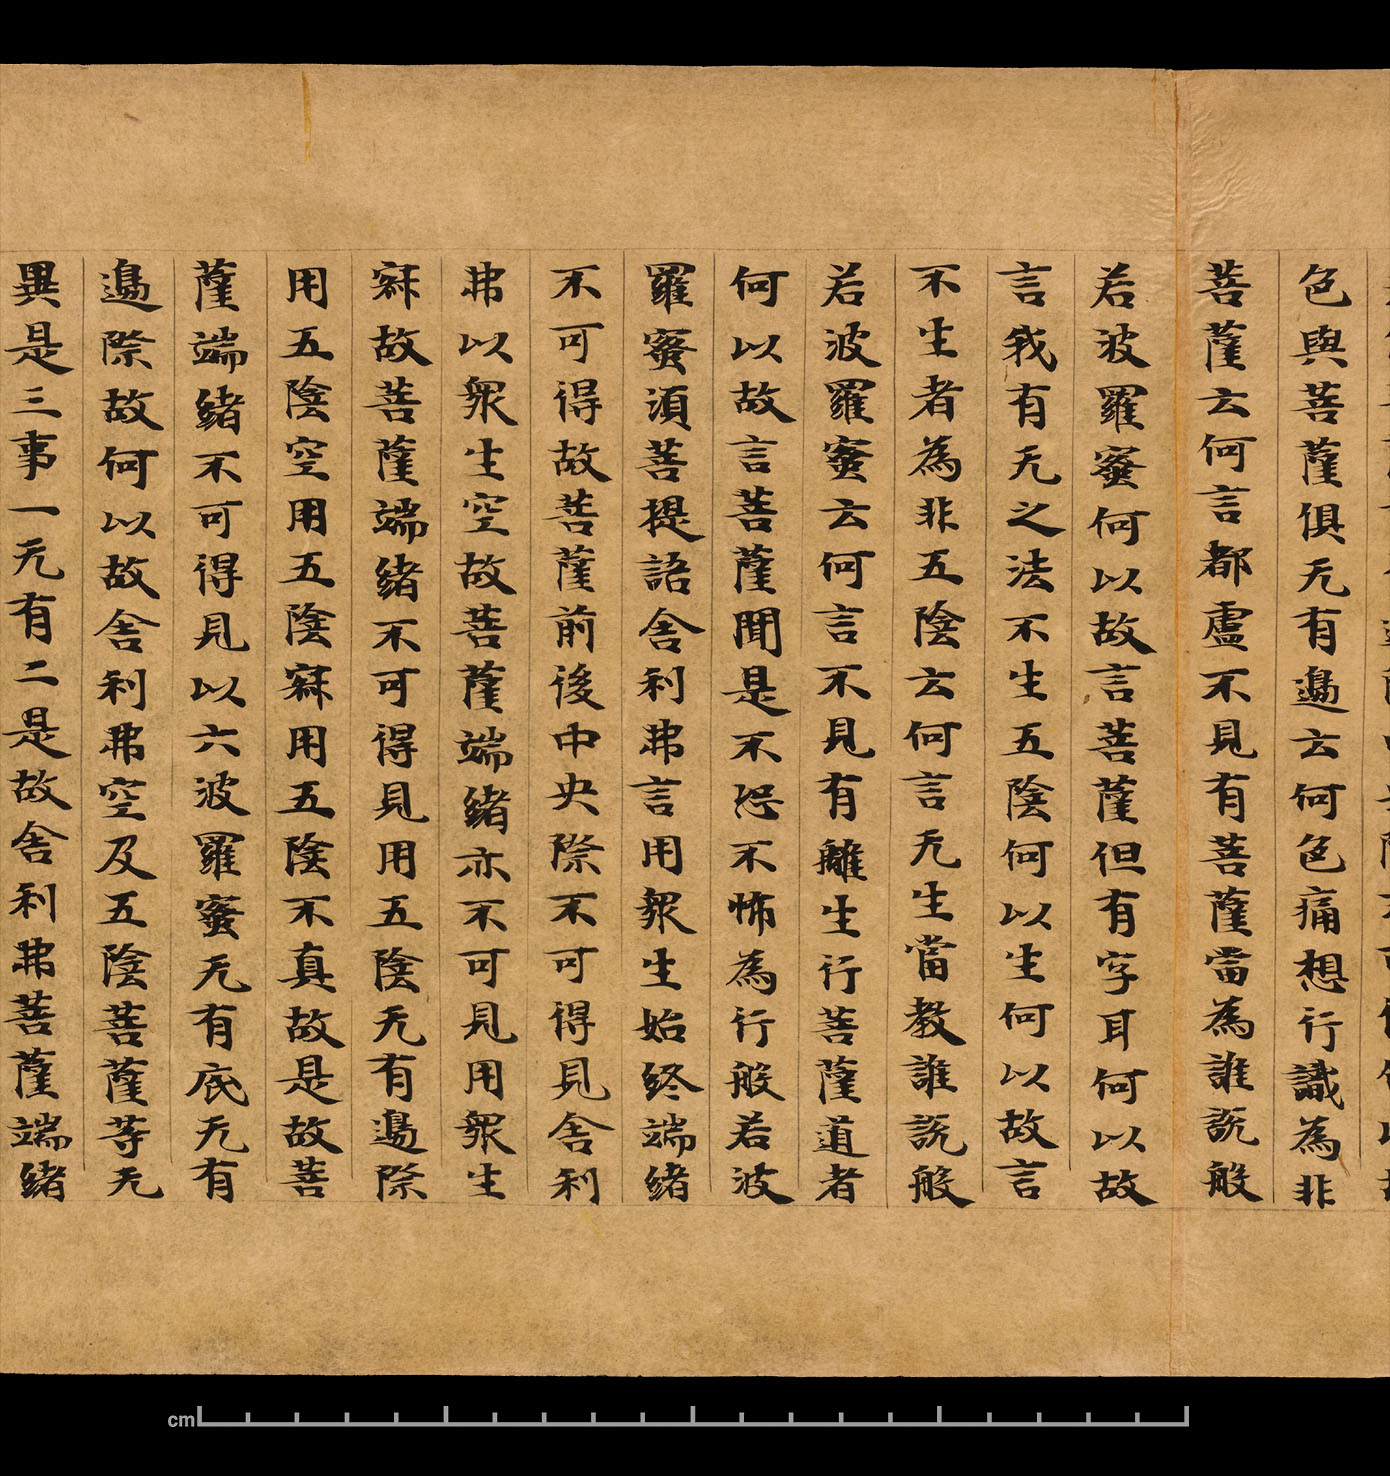 色與菩薩俱无有邊云何色痛想行識為非
菩薩云何言都盧不見有菩薩當為誰說般
若波羅蜜何以故言菩薩但有字耳何以故
言我有无之法不生五陰何以生何以故言
不生者為非五陰云何言无生當教誰說般
若波羅蜜云何言不見有離生行菩薩道者
何以故言菩薩聞是不恐不怖為行般若波
羅蜜須菩提語舍利弗言用眾生始終端緒
不可得故菩薩前後中央際不可得見舍利
弗以眾生空故菩薩端緒亦不可見用眾生
寂故菩薩端緒不可得見用五陰无有邊際
用五陰空用五陰寂用五陰不真故是故菩
薩端緒不可得見以六波羅蜜无有底无有
邊際故何以故舍利弗空及五陰菩薩等无
異是三事一无有二是故舍利弗菩薩端緒